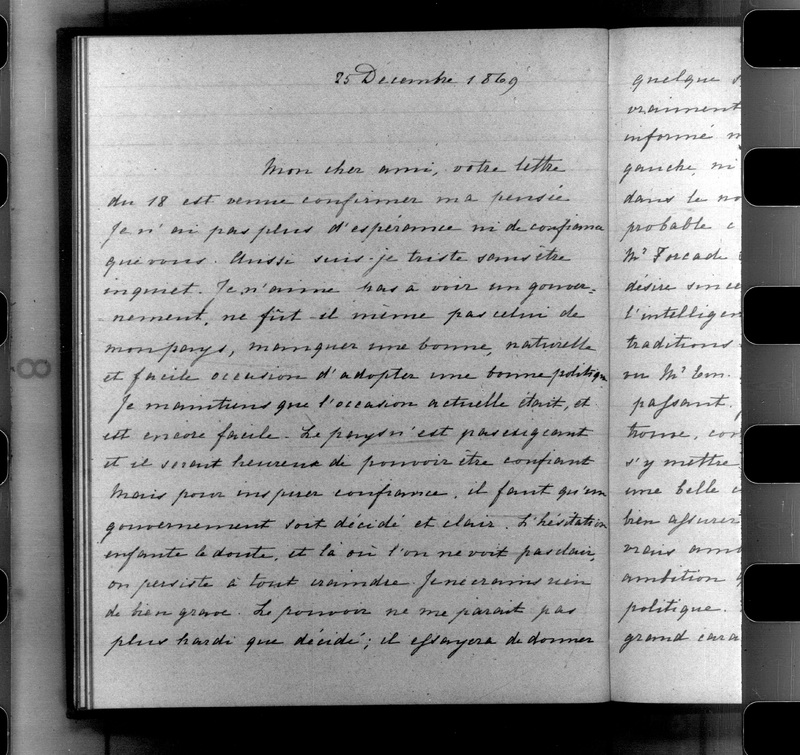 25 Decembre 1869
Mon cher ami, votre lettre
du 18 est venue confirmer ma pensée
Je n'ai pas plus d'espérance ni de confiance
que vous. Aussi suis-je triste sans être
inquiet. Je n'aime pas à voir un gouver=
=nement, ne fût-il même pas celui de
mon pays, manquer une bonne, naturelle
et facile occasion d'adopter une bonne politique
Je maintiens que l'occasion actuelle était, et
est encore facile. Le pays n'est pas exigeant
et il serait heureux de pouvoir être confiant
Mais pour inspirer confiance, il faut qu'un
gouvernement soit décidé et clair. L'hésitation
enfante le doute, et là où l'on ne voit pas clair,
on persiste à tout craindre. Je ne crains rien
de bien grave. Le pouvoir ne me parait pas
plus hardi que décidé; il essayera de donner
quelque
vraiment
informé
gauche, ni
dans le
probable
Mr Forcade
désire
l'intelligen
traditions
ou Mr Em.
passant.
trome, con
s'y mettre
une belle
bien assurer
vrais amb
ambition
politique.
grand cara
8